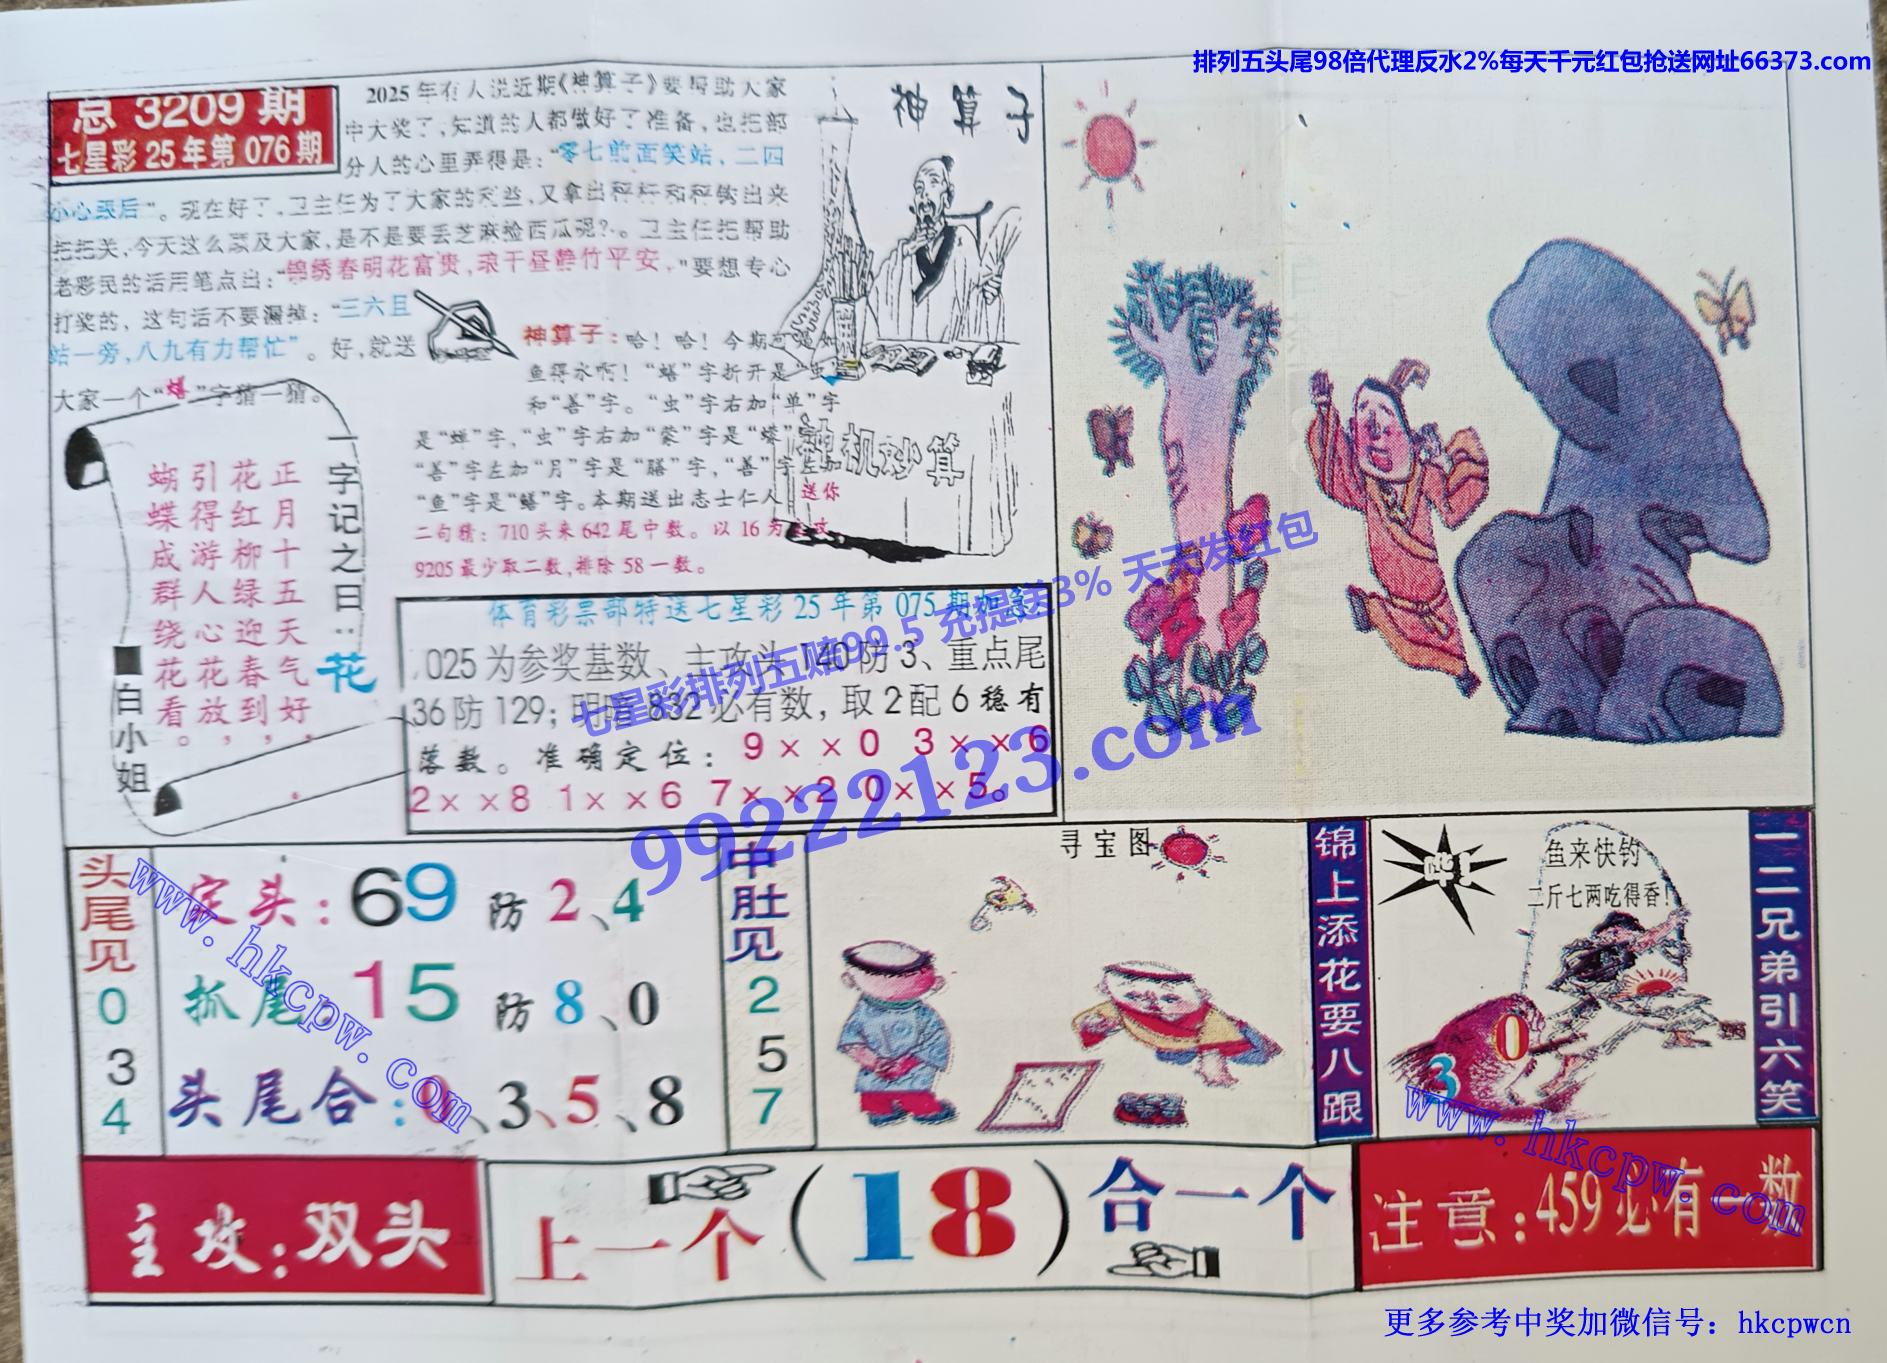 排列五头尾98倍代理反水2%每天千元红包抢送网址66373.com
总 3209 期
七星彩 25 年第 076 期
2025 年有人说近期《神算子》要帮助大家
中大奖了，知道的人都做好了准备，也把部
分人的心里弄得是：“零七前面笑站，二四
小心跟后”。现在好了，卫主任为了大家的利益，又拿出秤杆和秤钩出来
把把关，今天这么顾及大家，是不是要丢芝麻捡西瓜呢？。卫主任把帮助
老彩民的话用笔点出：“锦绣春明花富贵，琅干昼静竹平安，”要想专心
打奖的，这句话不要漏掉：“三六且
站一旁，八九有力帮忙”。好，就送
大家一个“蟮”字猜一猜。
神算子
神算子：哈！哈！今期可是如
鱼得水啊！“蟮”字折开是“虫”
和“善”字。“虫”字右加“单”字
是“蝉”字，“虫”字右加“蒙”字是“蠓”字
“善”字左加“月”字是“膳”字，“善”字左加
“鱼”字是“鳝”字。本期送出志士仁人 送你
二句精：710 头来 642 尾中数。以 16 为主攻
9205 最少取二数，排除 58 一数。
神机妙算
一字记之曰：花
正月十五天气好，
花红柳绿迎春到，
引得游人心花放，
蝴蝶成群绕花看。
■白小姐
体育彩票部特送七星彩 25 年第 075 期如急
025 为参奖基数、主攻头 140 防 3、重点尾
36 防 129；明暗 832 必有数，取 2 配 6 稳有
落数。准确定位：9××0 3××6
2××8 1××6 7××2 0××5。
七星彩排列五赔99.5 充提送3% 天天发红包
99222123.com
头尾见 0 3 4
定头：69 防 2、4
抓尾：15 防 8、0
头尾合：0、3、5、8
中肚见 2 5 7
寻宝图
锦上添花要八跟
鱼来快钓
二斤七两吃得香！
3 0
一二兄弟引六笑
www.hkcpw.com
www.hkcpw.com
主攻：双头
上一个（18）合一个
注意：459 必有一数
更多参考中奖加微信号：hkcpwcn